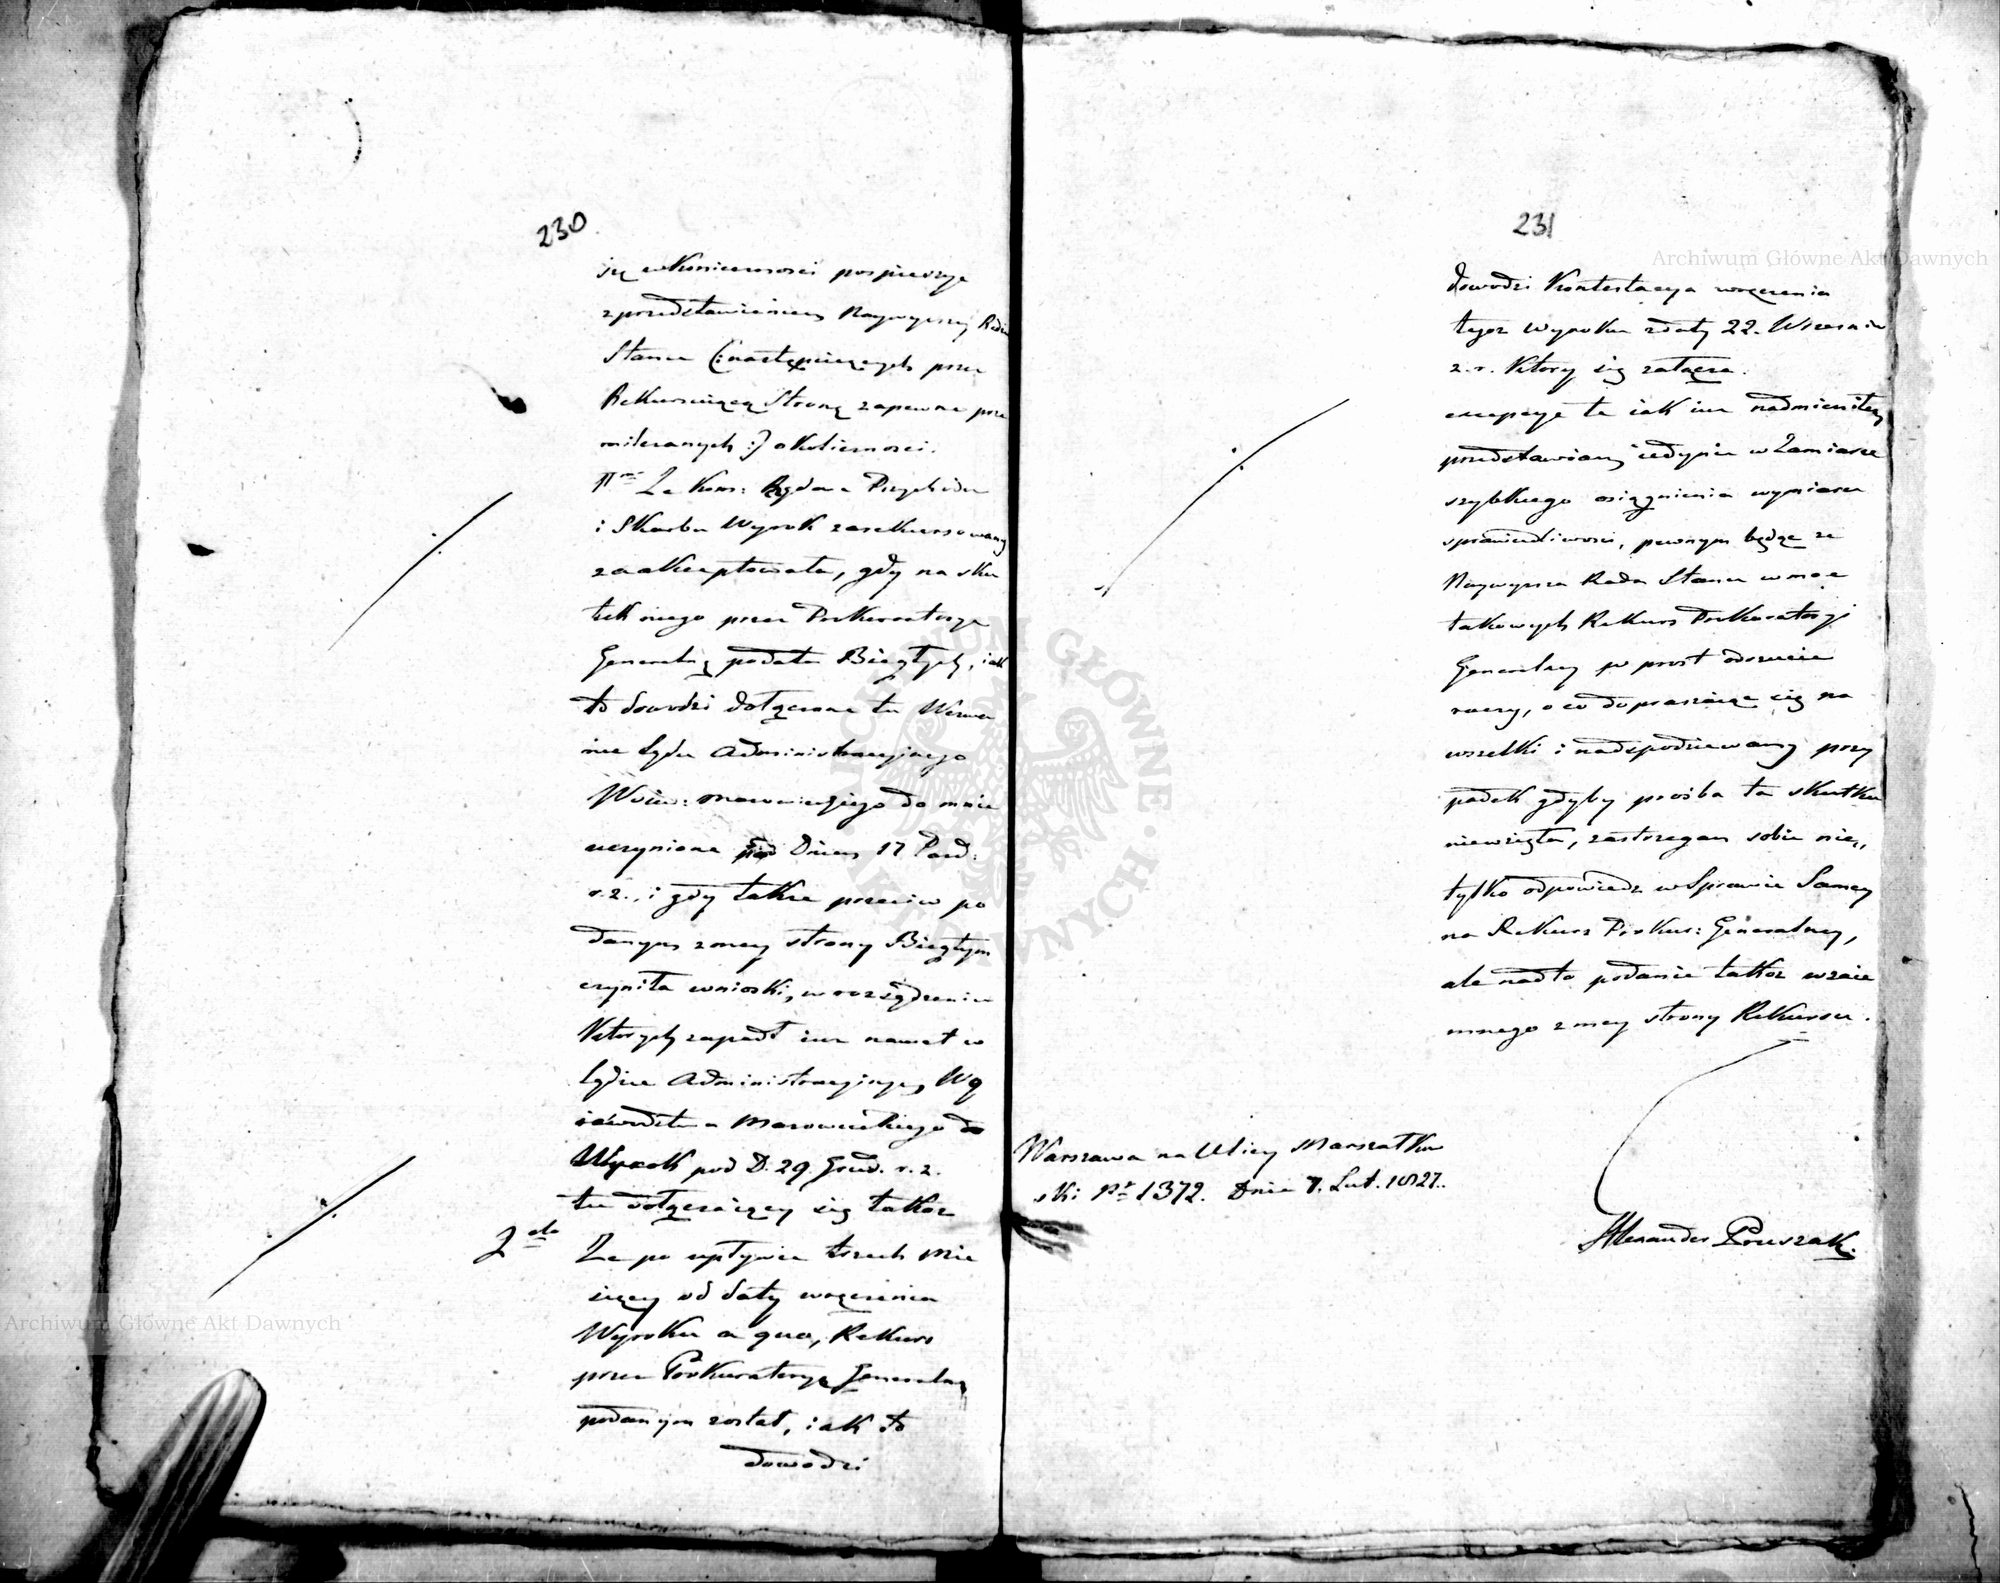 230
się w konieczności pospieszyć
z przedstawieniem Naywyższey Radzie
Stanu (: następuiących przez
Rekursuiącą Stronę zapewne prze
milczanych :) okoliczności.
1mo Że Kom: Rządowa Przychodu
i Skarbu Wyrok zarekursowany
zaakceptowała, gdy na sku
tek niego przez Prokuratoryę
Generalną podała Biegłych, iak
to dowodzi dołączone tu Wezwa
nie Sądu Administracyjnego
Woiew: Mazowieckiego do mnie
uczynione pod Dniem 17 Paźd:
r. z., i gdy także przeciw po
danym z mey strony Biegłym
czyniła wnioski, w rozsądzeniu
Których zapadł iuż nawet w
Sądzie Administracyjnym Wo
iewództwa Mazowieckiego
Wyrok pod D. 29. Grud. r. z.
tu dołączaiący się także
2do Że po upływie trzech Mie
sięcy od daty wręczenia
Wyroku a quo, Rekurs
przez Prokuratoryą Generalną
podanym został, iak to
dowodzi
231
dowodzi Kontestacya wręczenia
tegoż Wyroku z daty 22. Września
z. r. Który się załącza.
excepcye te iak iuż nadmieniłem
przedstawiam iedynie w Zamiarze
szybkiego osiągnienia wymiaru
sprawiedliwości, pewnym będąc że
Naywyższa Rada Stanu w moc
takowych Rekurs Prokuratoryi
Generalney po prost odrzucić
raczy, o co dopraszaiąc się na
wszelki i nadspodziewany przy
padek gdyby prośba ta skutku
niewzięła, zastrzegam sobie nie„
tylko odpowiedź w Sprawie Samey
na Rekurs Prokur: Generalney,
ale nadto podanie także wzaie
mnego z mey strony Rekursu.
Warszawa na Ulicy Marszałkow
ski Nr 1372. Dnia 7. Lut. 1827.
Alexander Pruszak.
Archiwum Główne Akt Dawnych
Archiwum Główne Akt Dawnych
ARCHIWUM GŁÓWNE AKT DAWNYCH